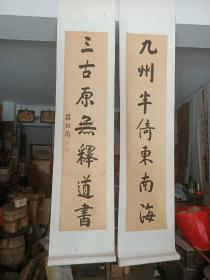 九州半倚東南海
三古原無釋道書